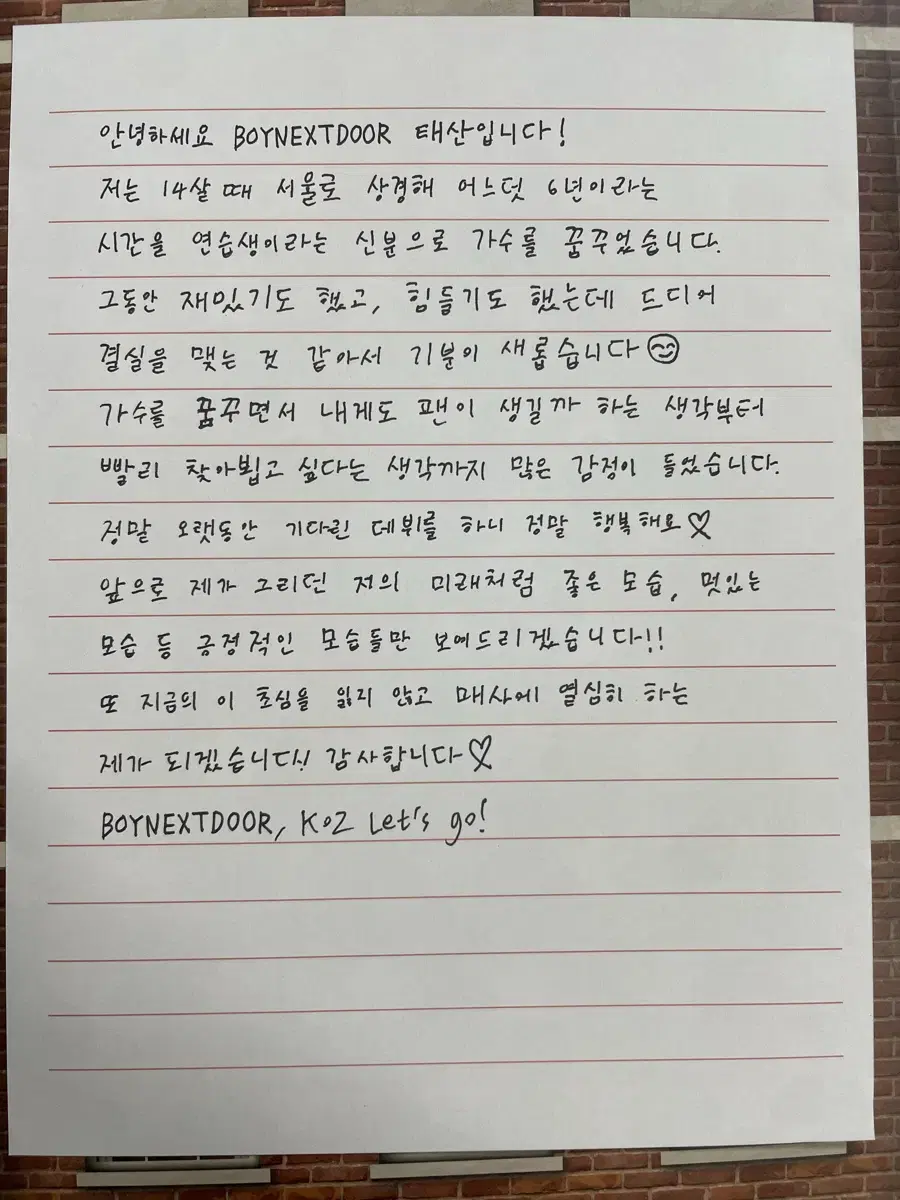 안녕하세요 BOYNEXTDOOR 태산입니다!
저는 14살 때 서울로 상경해 어느덧 6년이라는
시간을 연습생이라는 신분으로 가수를 꿈꾸었습니다.
그동안 재밌기도 했고, 힘들기도 했는데 드디어
결실을 맺는 것 같아서 기분이 새롭습니다
가수를 꿈꾸면서 내게도 팬이 생길까 하는 생각부터
빨리 찾아뵙고 싶다는 생각까지 많은 감정이 들었습니다.
정말 오랫동안 기다린 데뷔를 하니 정말 행복해요♡
앞으로 제가 그리던 저의 미래처럼 좋은 모습, 멋있는
모습 등 긍정적인 모습들만 보여드리겠습니다!!
또 지금의 이 초심을 잃지 않고 매사에 열심히 하는
제가 되겠습니다!! 감사합니다♡
BOYNEXTDOOR, KOZ Let's go!